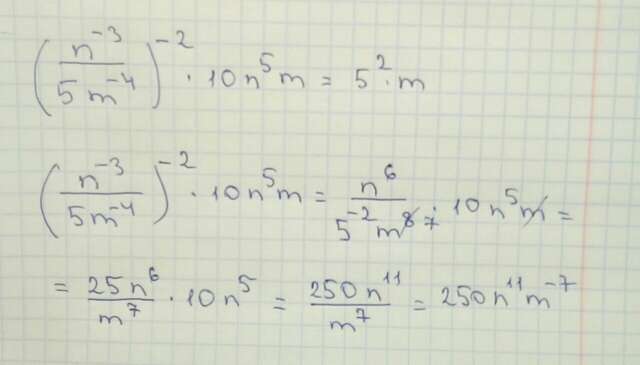 (n⁻³/5m⁻⁴)⁻² · 10n⁵m = 5² · m
(n⁻³/5m⁻⁴)⁻² · 10n⁵m = n⁶/5⁻²m⁸ 7 · 10n⁵m =
= 25n⁶/m⁷ · 10n⁵ = 250n¹¹/m⁷ = 250n¹¹m⁻⁷